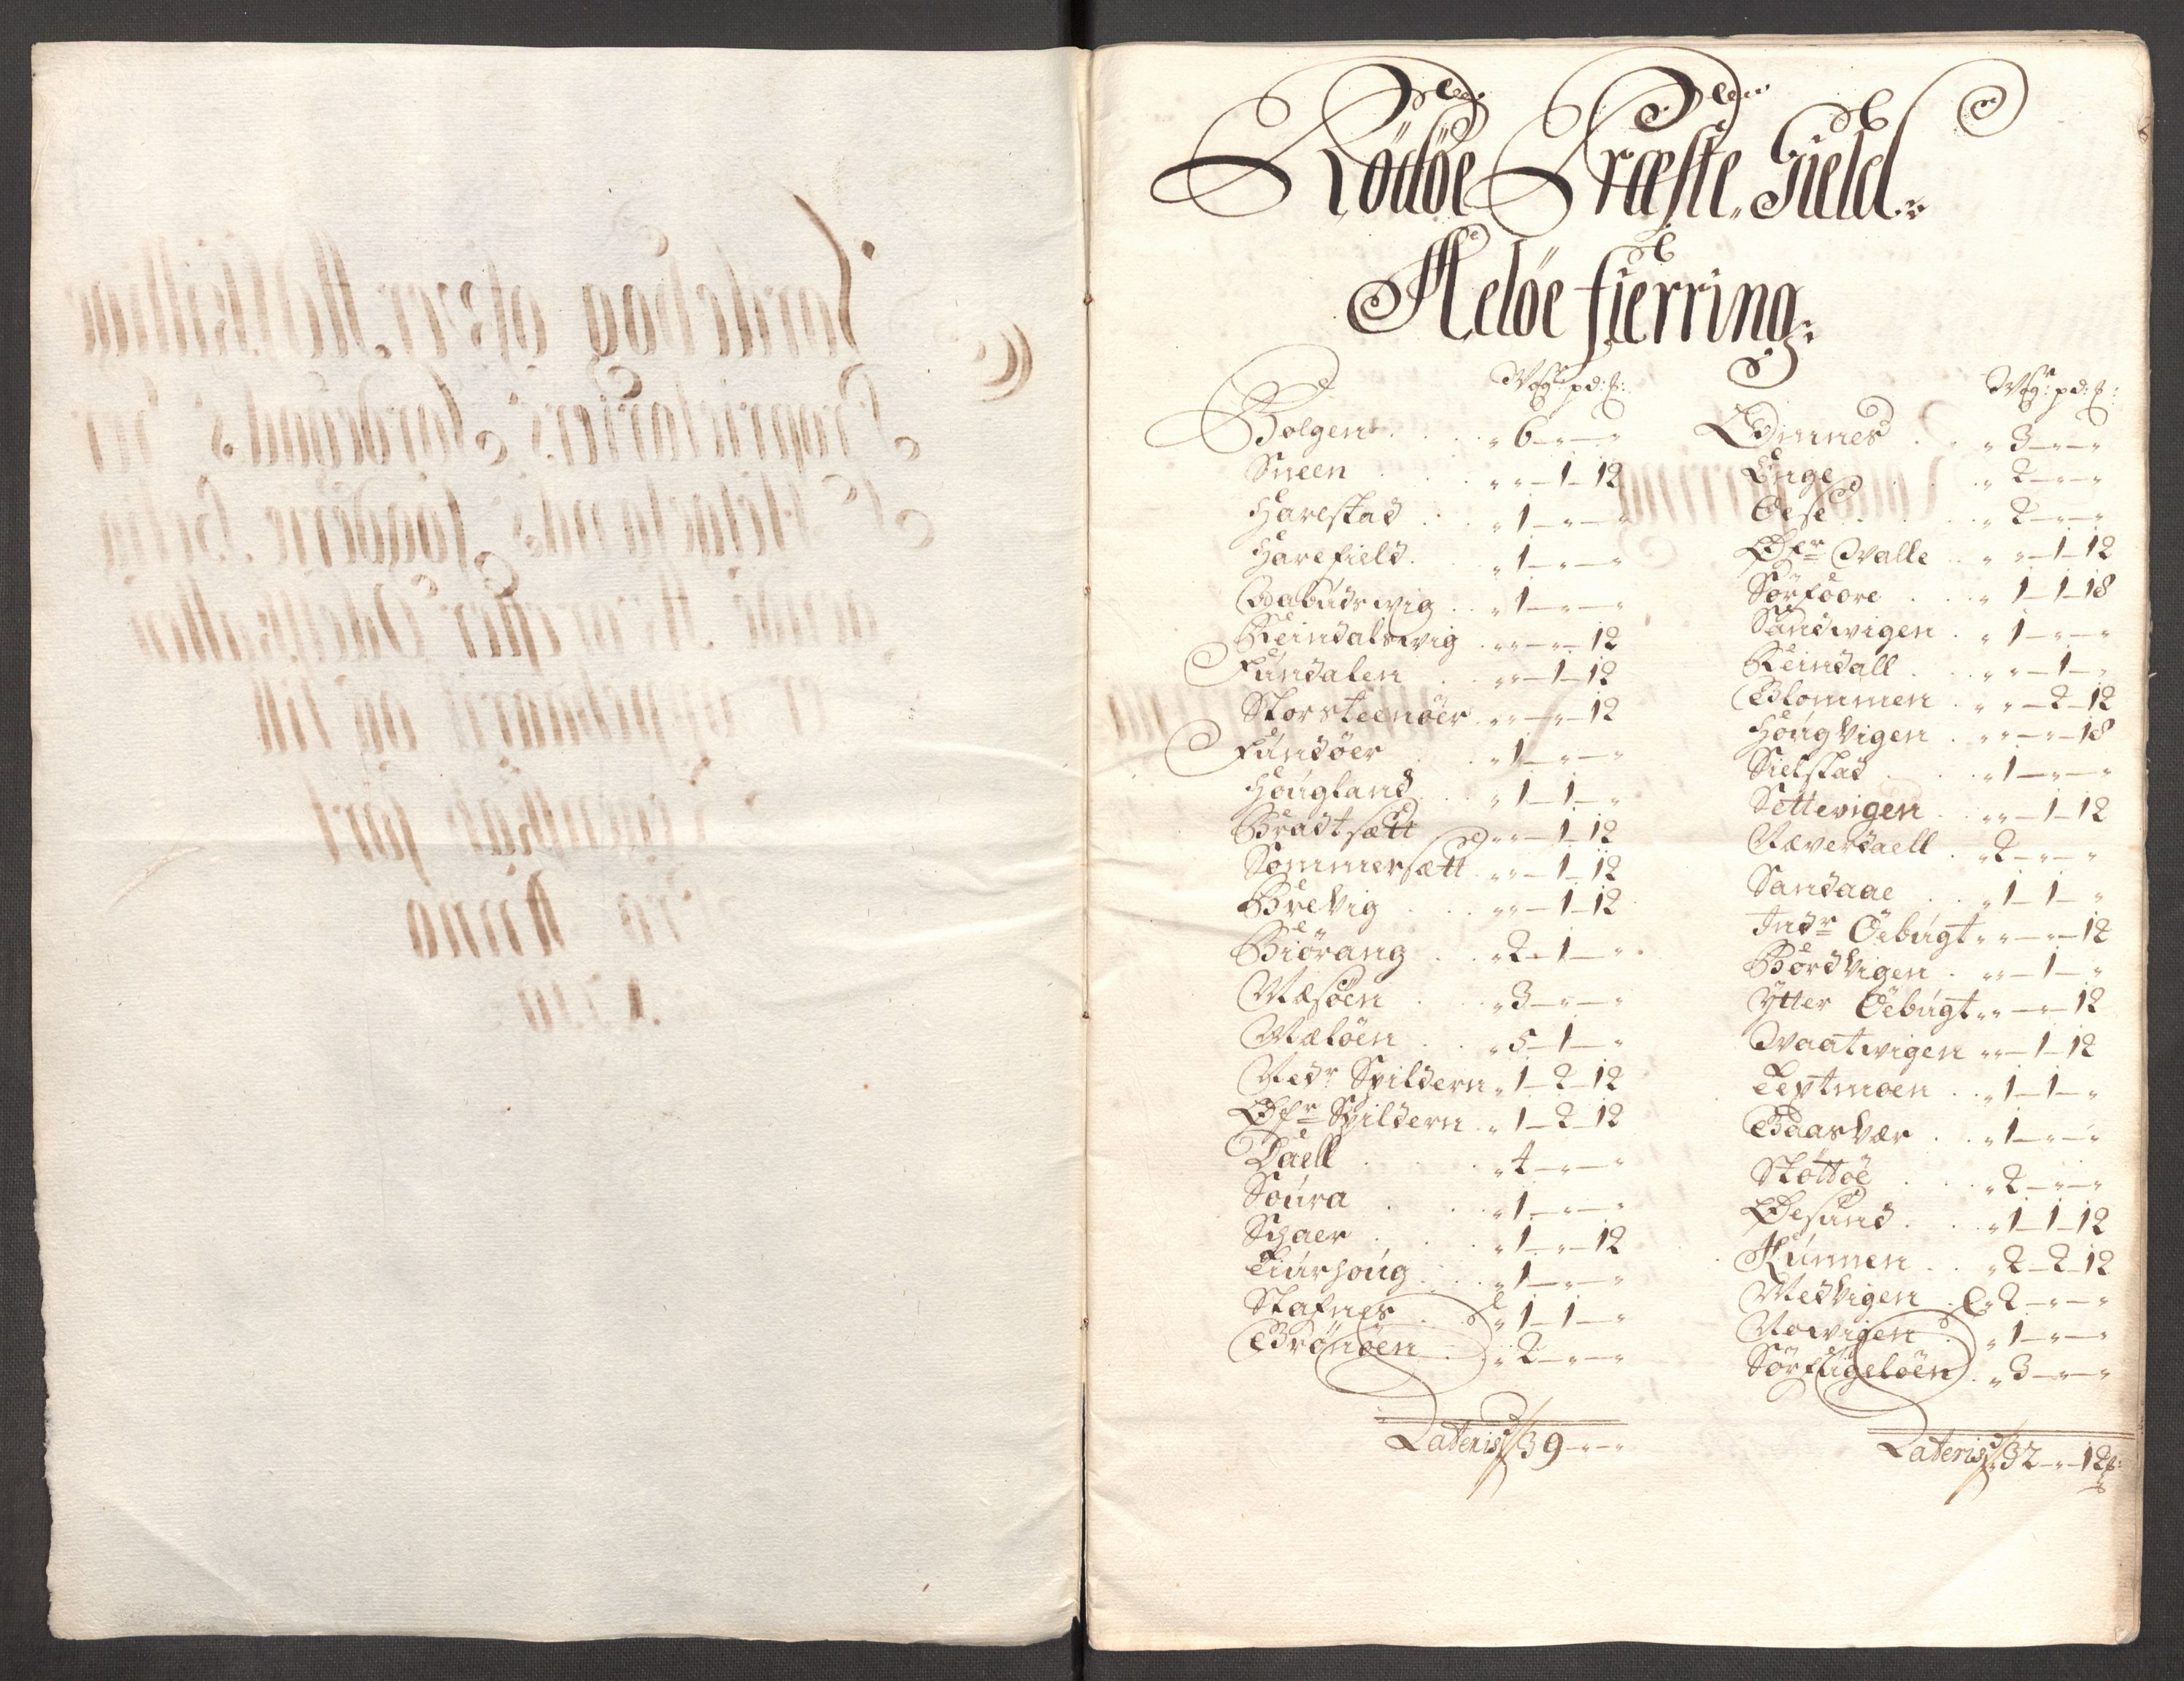 Rödöe Præste Gield.
Meløe fierring:
Wog: pd: f:
Bolgen . . . „ 6 – „ – „
Sneen . . . „ „ – 1 – 12
Harestad . . „ 1 – „ – „
Harefield . „ 1 – „ – „
Gabudswig . . „ 1 – „ – „
Reindalswig . „ „ – „ – 12
Fundalen . . „ „ – 1 – 12
Storsteenöer „ „ – „ – 12
Fundöer . . „ 1 – „ – „
Hougland . . „ 1 – 1 – „
Bradtsætt „ „ – 1 – 12
Sommersætt . „ „ – 1 – 12
Brevig . . „ „ – 1 – 12
Biörang . . „ 2 – 1 – „
Mæsöen . . „ 3 – „ – „
Mæløen . . „ 5 – 1 – „
Nedr Spildern „ 1 – 2 – 12
Øfr Spildern . „ 1 – 2 – 12
Daell . . . „ 4 – „ – „
Soura . . „ 1 – „ – „
Schaer . . „ 1 – „ – 12
Tiurhoug . . „ 1 – „ – „
Stafnes . . „ 1 – 1 – „
Brönöen . „ 2 – „ – „
Lateris 39 – „ – „
Wog: pd: f:
Ødinnes . . „ 3 – „ – „
Enge . . „ 2 – „ – „
Oese . . . „ 2 – „ – „
Øfr Walle . „ „ – 1 – 12
Sörfoore . . „ 1 – 1 – 18
Sandwigen . „ 1 – „ – „
Reindall . . „ „ – 1 – „
Blommen . „ „ – 2 – 12
Hougvigen . „ „ – „ – 18
Sielstad . . „ 1 – „ – „
Settevigen . „ „ – 1 – 12
Næverdaell . „ 2 – „ – „
Sandaae . . „ 1 – 1 – „
Indr Öebugt „ „ – „ – 12
Bordvigen . „ „ – 1 – „
Ytter Öebugt „ „ – „ – 12
Waatwigen „ „ – 1 – 12
Teptmoen . . „ 1 – 1 – „
Baasvær . . „ 1 – „ – „
Støttöe . . „ 2 – „ – „
Øesund . . „ 1 – 1 – 12
Kunnen . . „ 2 – 2 – 12
Medvigen . „ 2 – „ – „
Nowigen . „ 1 – „ – „
Sörfugelöen . „ 3 – „ – „
Lateris 32 – „ – 12 f: